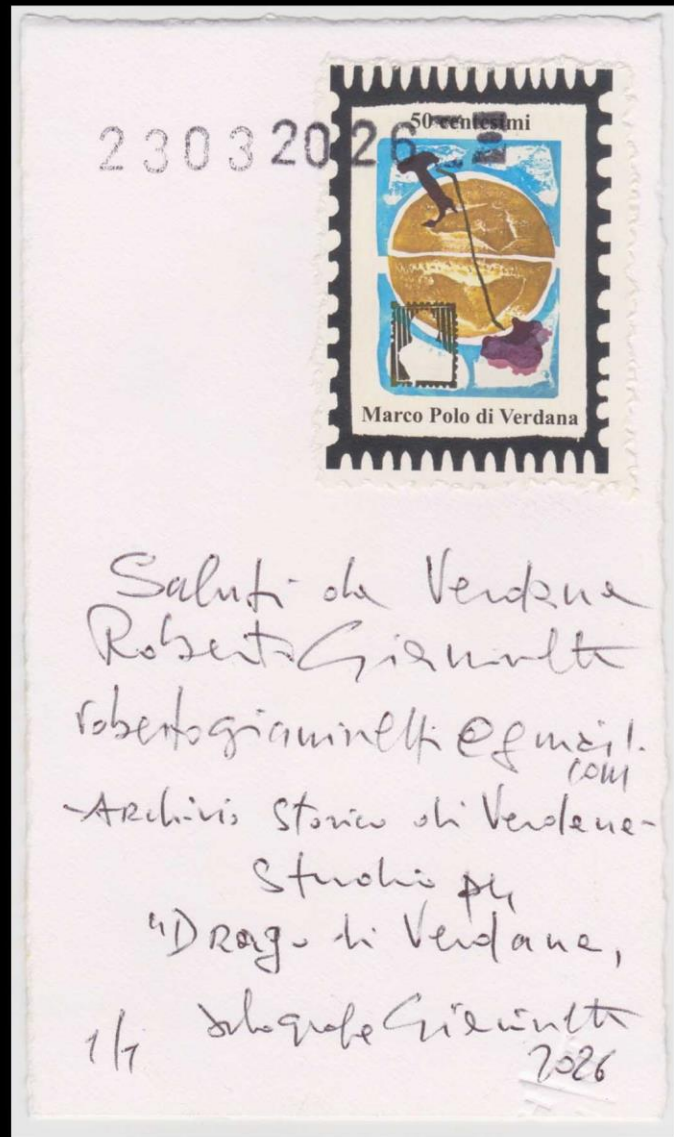 23032026
50 centesimi
Marco Polo di Verdana
Saluti da Verdana
Roberto Gianinetti
robertogianinetti@gmail.
com
-Archivio Storico di Verdana-
Studio per
"Drago di Verdana"
xilografo Gianinetti
1/1
2026